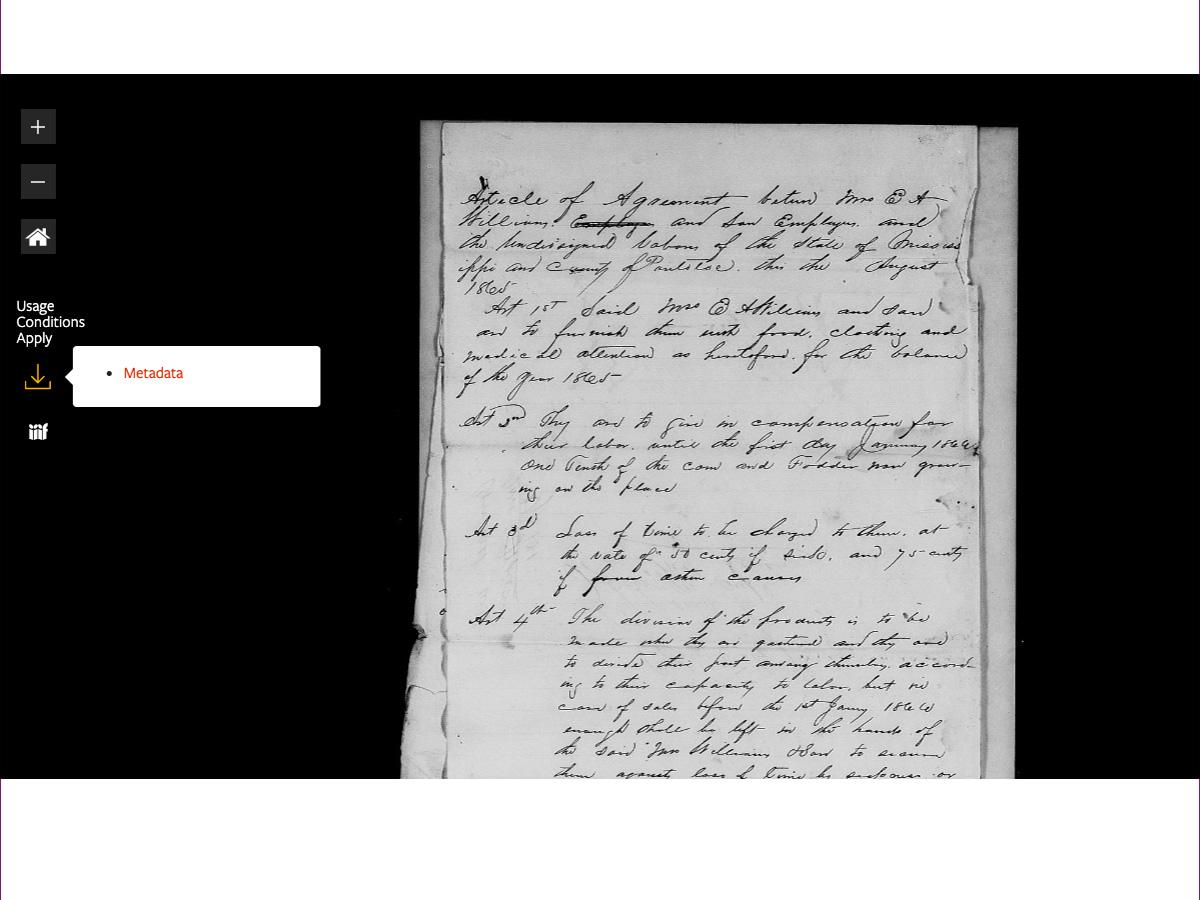 +
−
Usage
Conditions
Apply
• Metadata
Article of Agreement betwn Mrs E A
Williams. Employe and son Employers. and
the undersigned labores of the State of Mississ
ippi and County of Pontotoc. this the August
1865
Art 1st Said Mrs E A Williams and son
are to furnish them with food, clothing and
medical attention as heretofore. for the balance
of the year 1865
Art 2nd They are to give in compensation for
their labor. until the first day January 1866
One Tenth of the corn and Fodder now grow-
ing on the place
Art 3d Loss of time to be charged to them. at
the rate of 50 cents if sick, and 75 cents
if from other causes
Art 4th The division of the products is to be
made when they are gathered and they are
to divide their part among themselves accord-
ing to their capacity to labor, but in
case of sales before the 1st Jany 1866
enough shall be left in the hands of
the said Mrs Williams & Son to secure
them against loss of time by sickness or